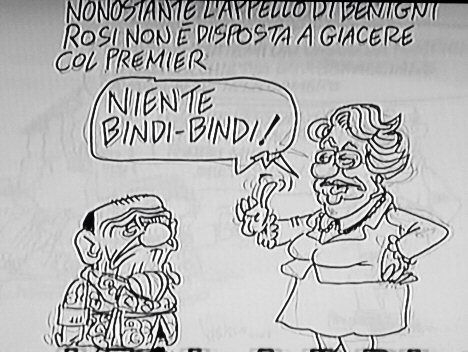 NONOSTANTE L'APPELLO DI BENIGNI
ROSI NON È DISPOSTA A GIACERE
COL PREMIER
NIENTE
BINDI-BINDI!